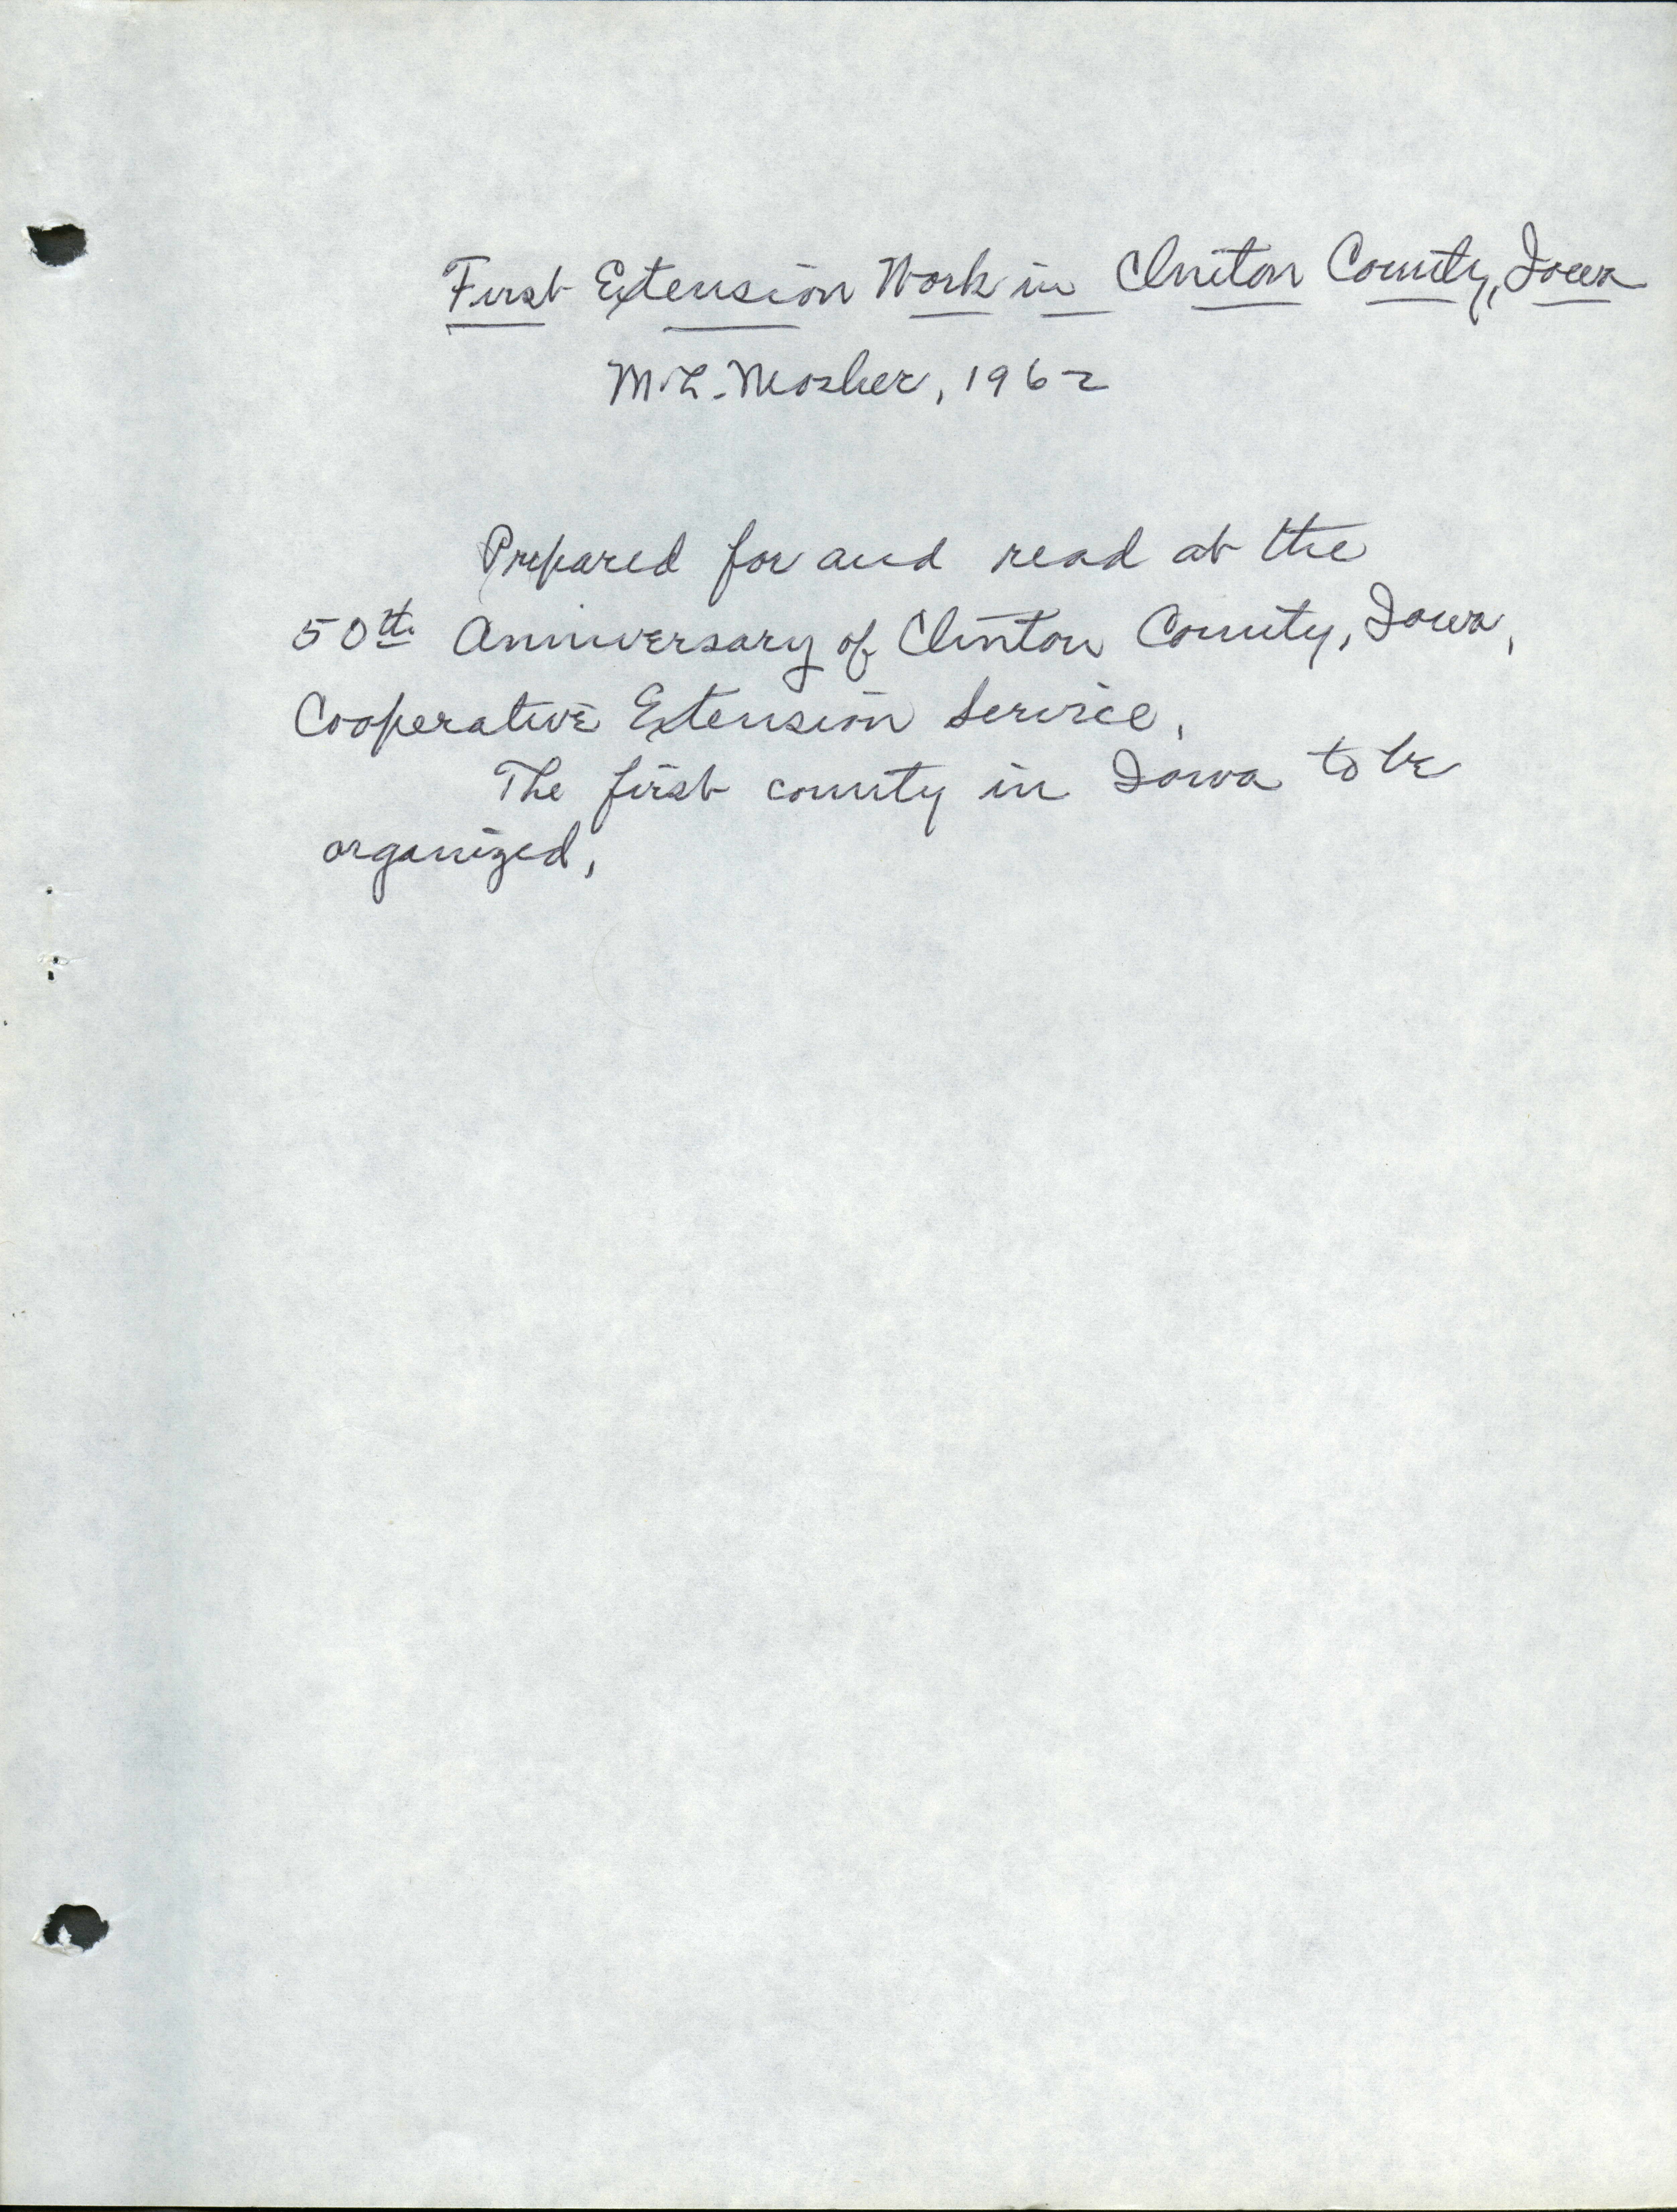 First Extension Work in Clinton County, Iowa
M.L. Mosher, 1962
Prepared for and read at the
50th Anniversary of Clinton County, Iowa,
Cooperative Extension Service.
The first county in Iowa to be
organized.